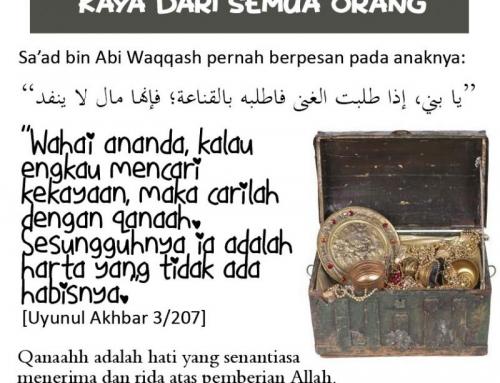 KAYA DARI SEMUA ORANG
Sa'ad bin Abi Waqqash pernah berpesan pada anaknya:
“يا بني، إذا طلبت الغنى فاطلبه بالقناعة؛ فإنها مال لا ينفد”
"Wahai ananda, kalau
engkau mencari
kekayaan, maka carilah
dengan qanaah.
Sesungguhnya ia adalah
harta yang tidak ada
habisnya."
[Uyunul Akhbar 3/207]
Qanaahh adalah hati yang senantiasa
menerima dan rida atas pemberian Allah.